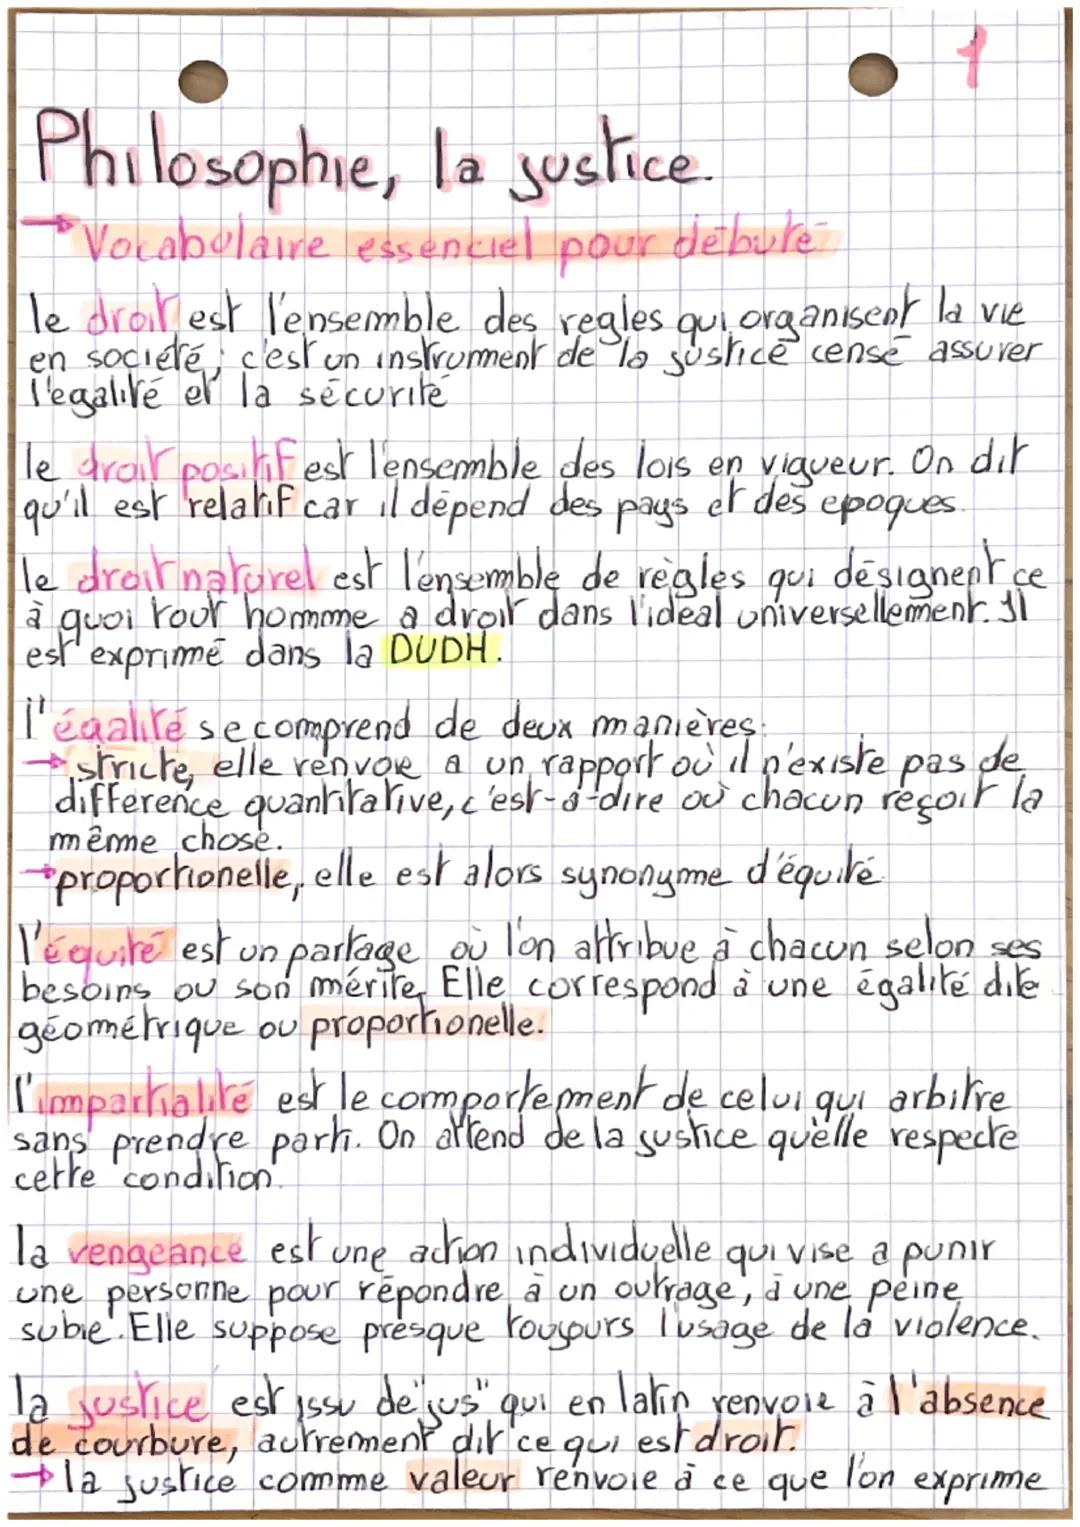 1
Philosophie, la justice.
→ Vocabulaire essenciel pour débuté
le droit est l'ensemble des regles qui organisent la vie
en société, c'est un instrument de la justice censé assurer
l'egalité et la sécurité
le droit positif est l'ensemble des lois en vigueur. On dit
qu'il est relatif car il dépend des pays et des epoques.
le droit naturel est l'ensemble de règles qui désignent ce
à quoi tout homme a droit dans l'ideal universellement. Il
est exprimé dans la DUDH.
l'égalité se comprend de deux manières:
→ stricte, elle renvoie a un rapport où il n'existe pas de
difference quantitative, c'est-à-dire où chacun reçoit la
même chose.
→ proportionelle, elle est alors synonyme d'équité
l'équité est un partage où l'on attribue à chacun selon ses
besoins ou son mérite. Elle correspond à une égalité dite
géométrique ou proportionelle.
l'impartialité est le comportement de celui qui arbitre
sans prendre parti. On attend de la justice qu'elle respecte
cette condition.
la vengeance est une action individuelle qui vise a punir
une personne pour répondre à un outrage, à une peine
subie. Elle suppose presque toujours l'usage de la violence.
la justice est issu de "jus" qui en latin renvoie à l'absence
de courbure, autrement dit ce qui est droit.
→ la justice comme valeur renvoie à ce que l'on exprime